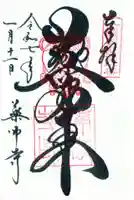 奉拝
薬師如来
令和七年
一月十一日
薬師寺